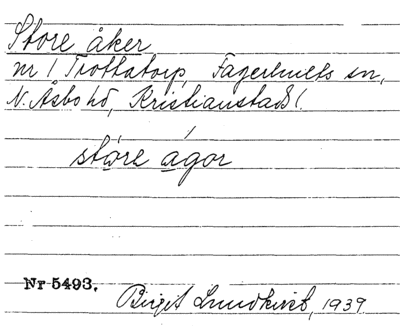 Store åker
nr 1, Trottatorp, Fagerhults sn,
N. Åsbo hd, Kristianstads l.
stóre ágor
Nr 5493.
Birgit Lundkvist, 1939